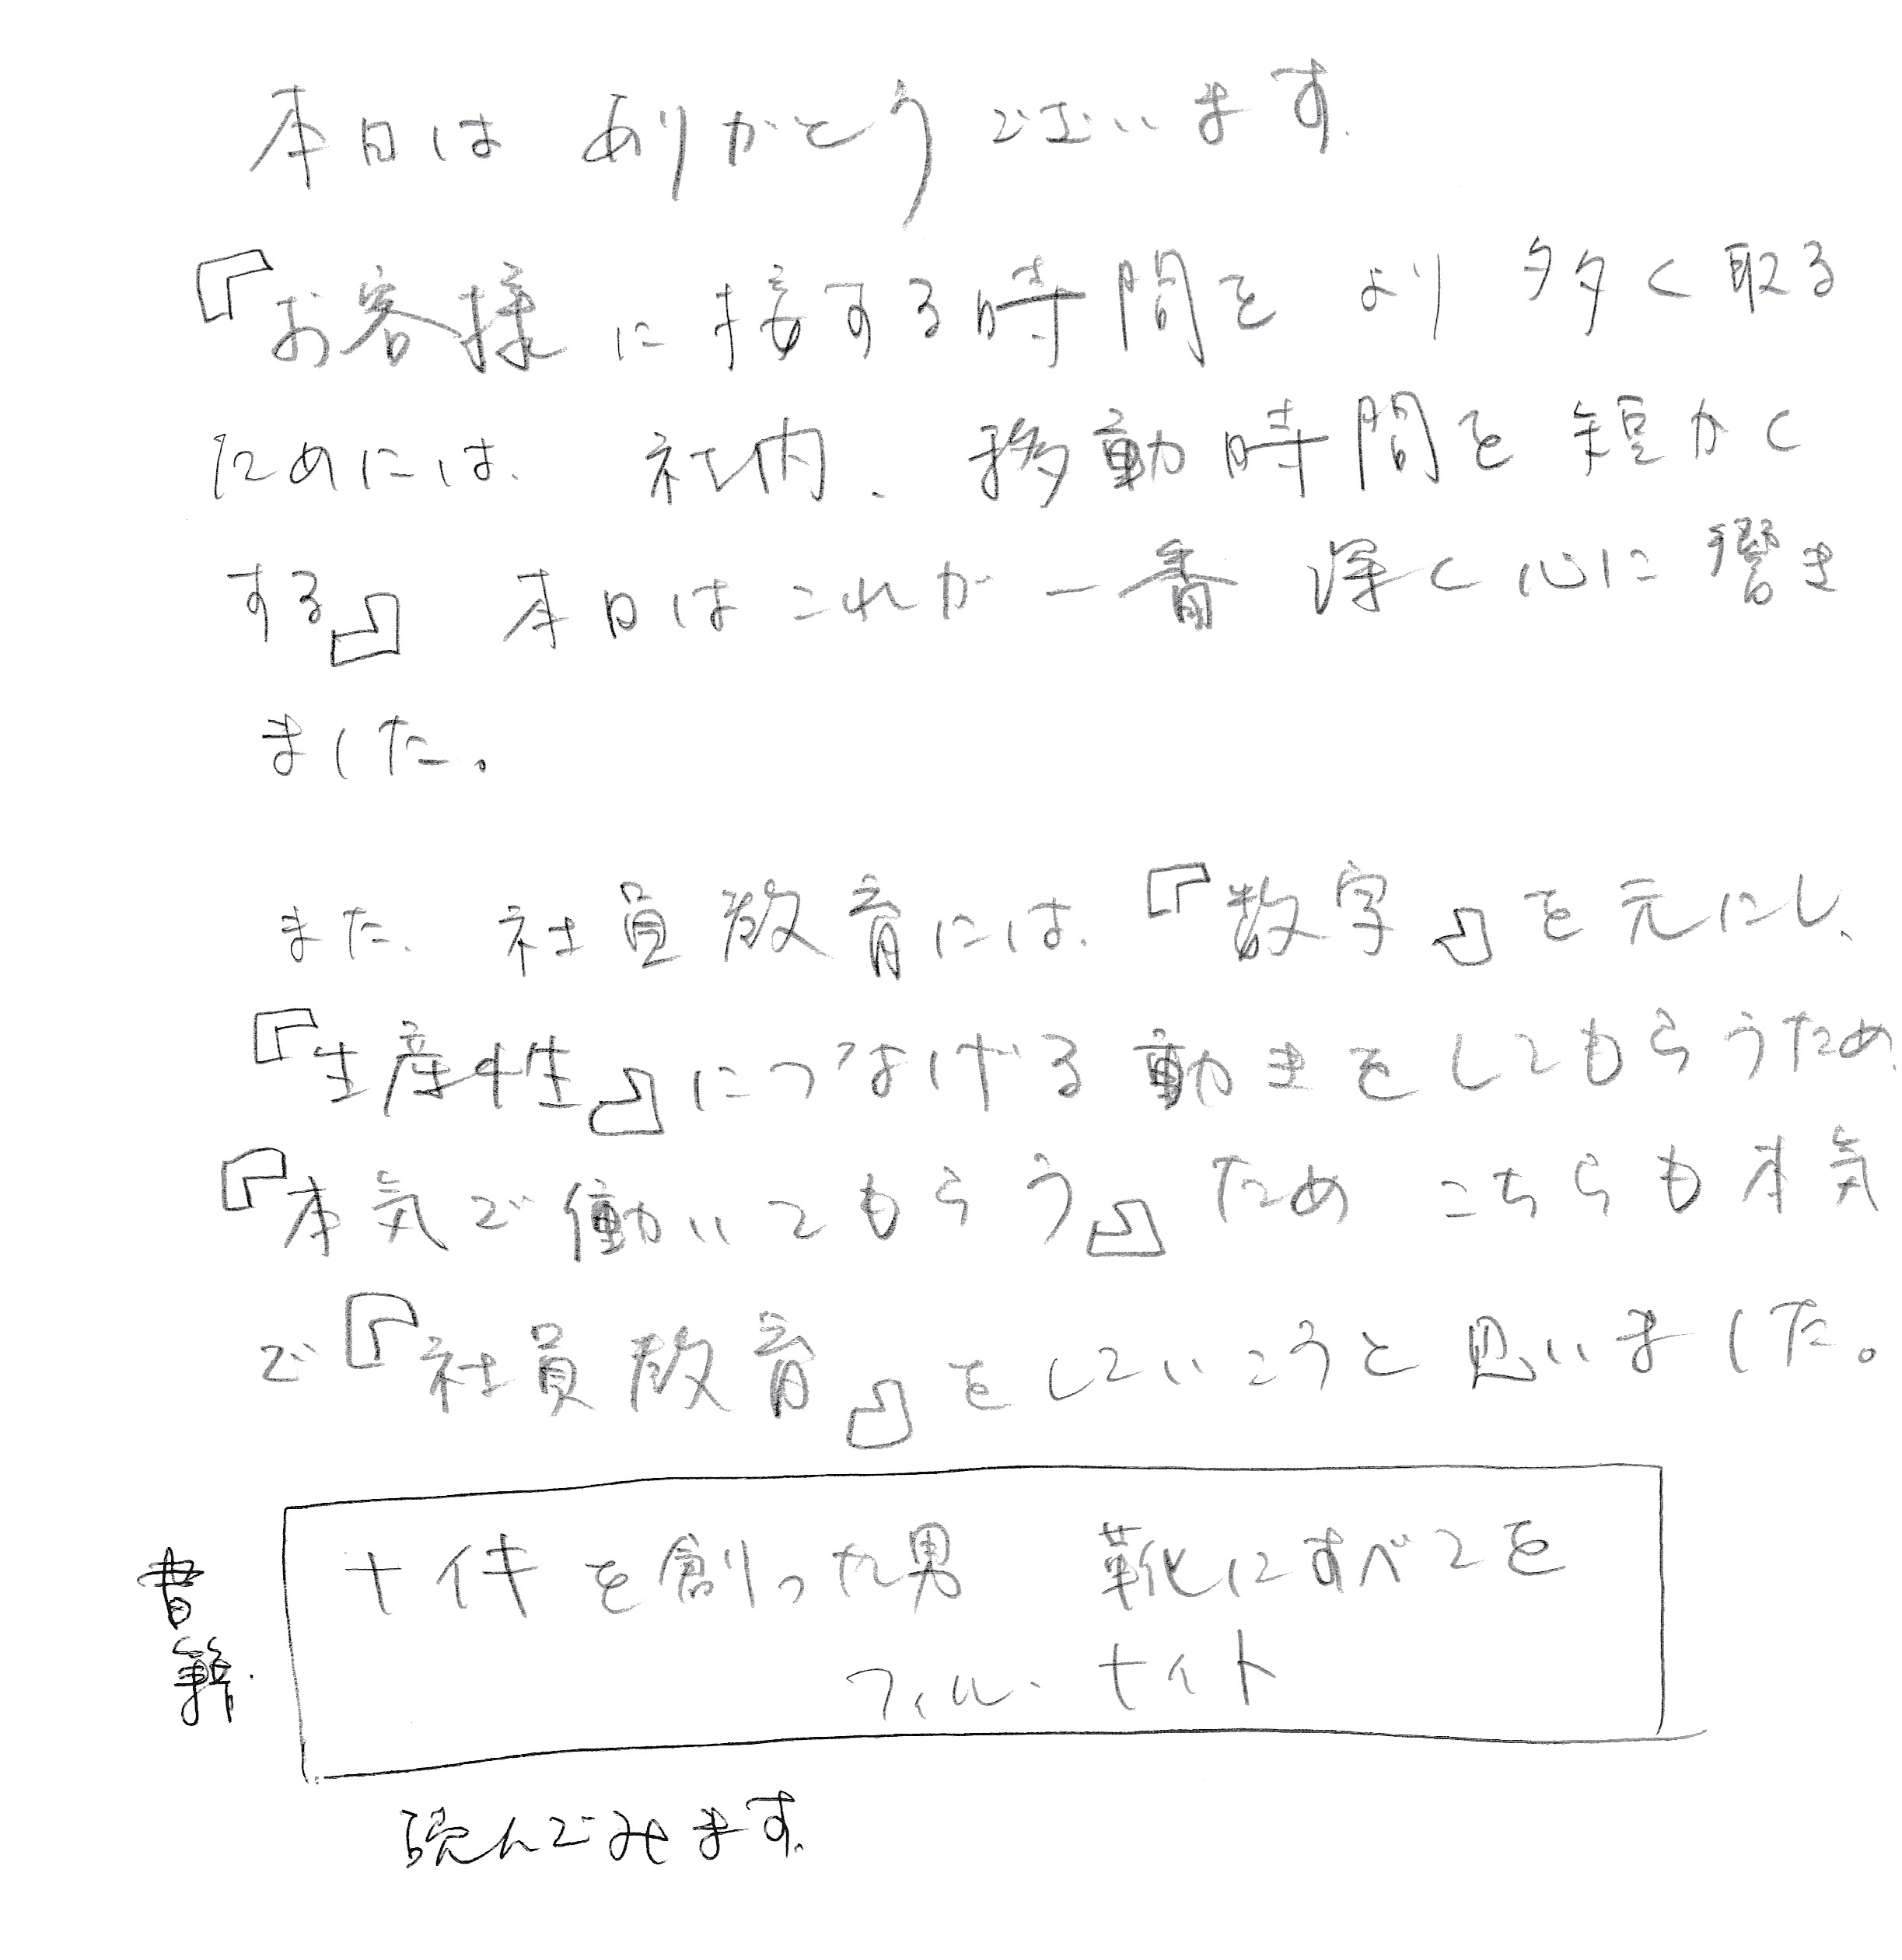 本日は ありがとうございます。
『お客様に接する時間を より多く取る
ためには、社内、移動時間を短かく
する』 本日はこれが一番 深く心に響き
ました。
また、社員教育には、『数字』を元にし、
『生産性』につなげる動きをしてもらうため、
『本気で働いてもらう』ため こちらも本気
で『社員教育』をしていこうと思いました。
書籍.
ナイキを創った男 靴にすべてを
フィル・ナイト
読んでみます。